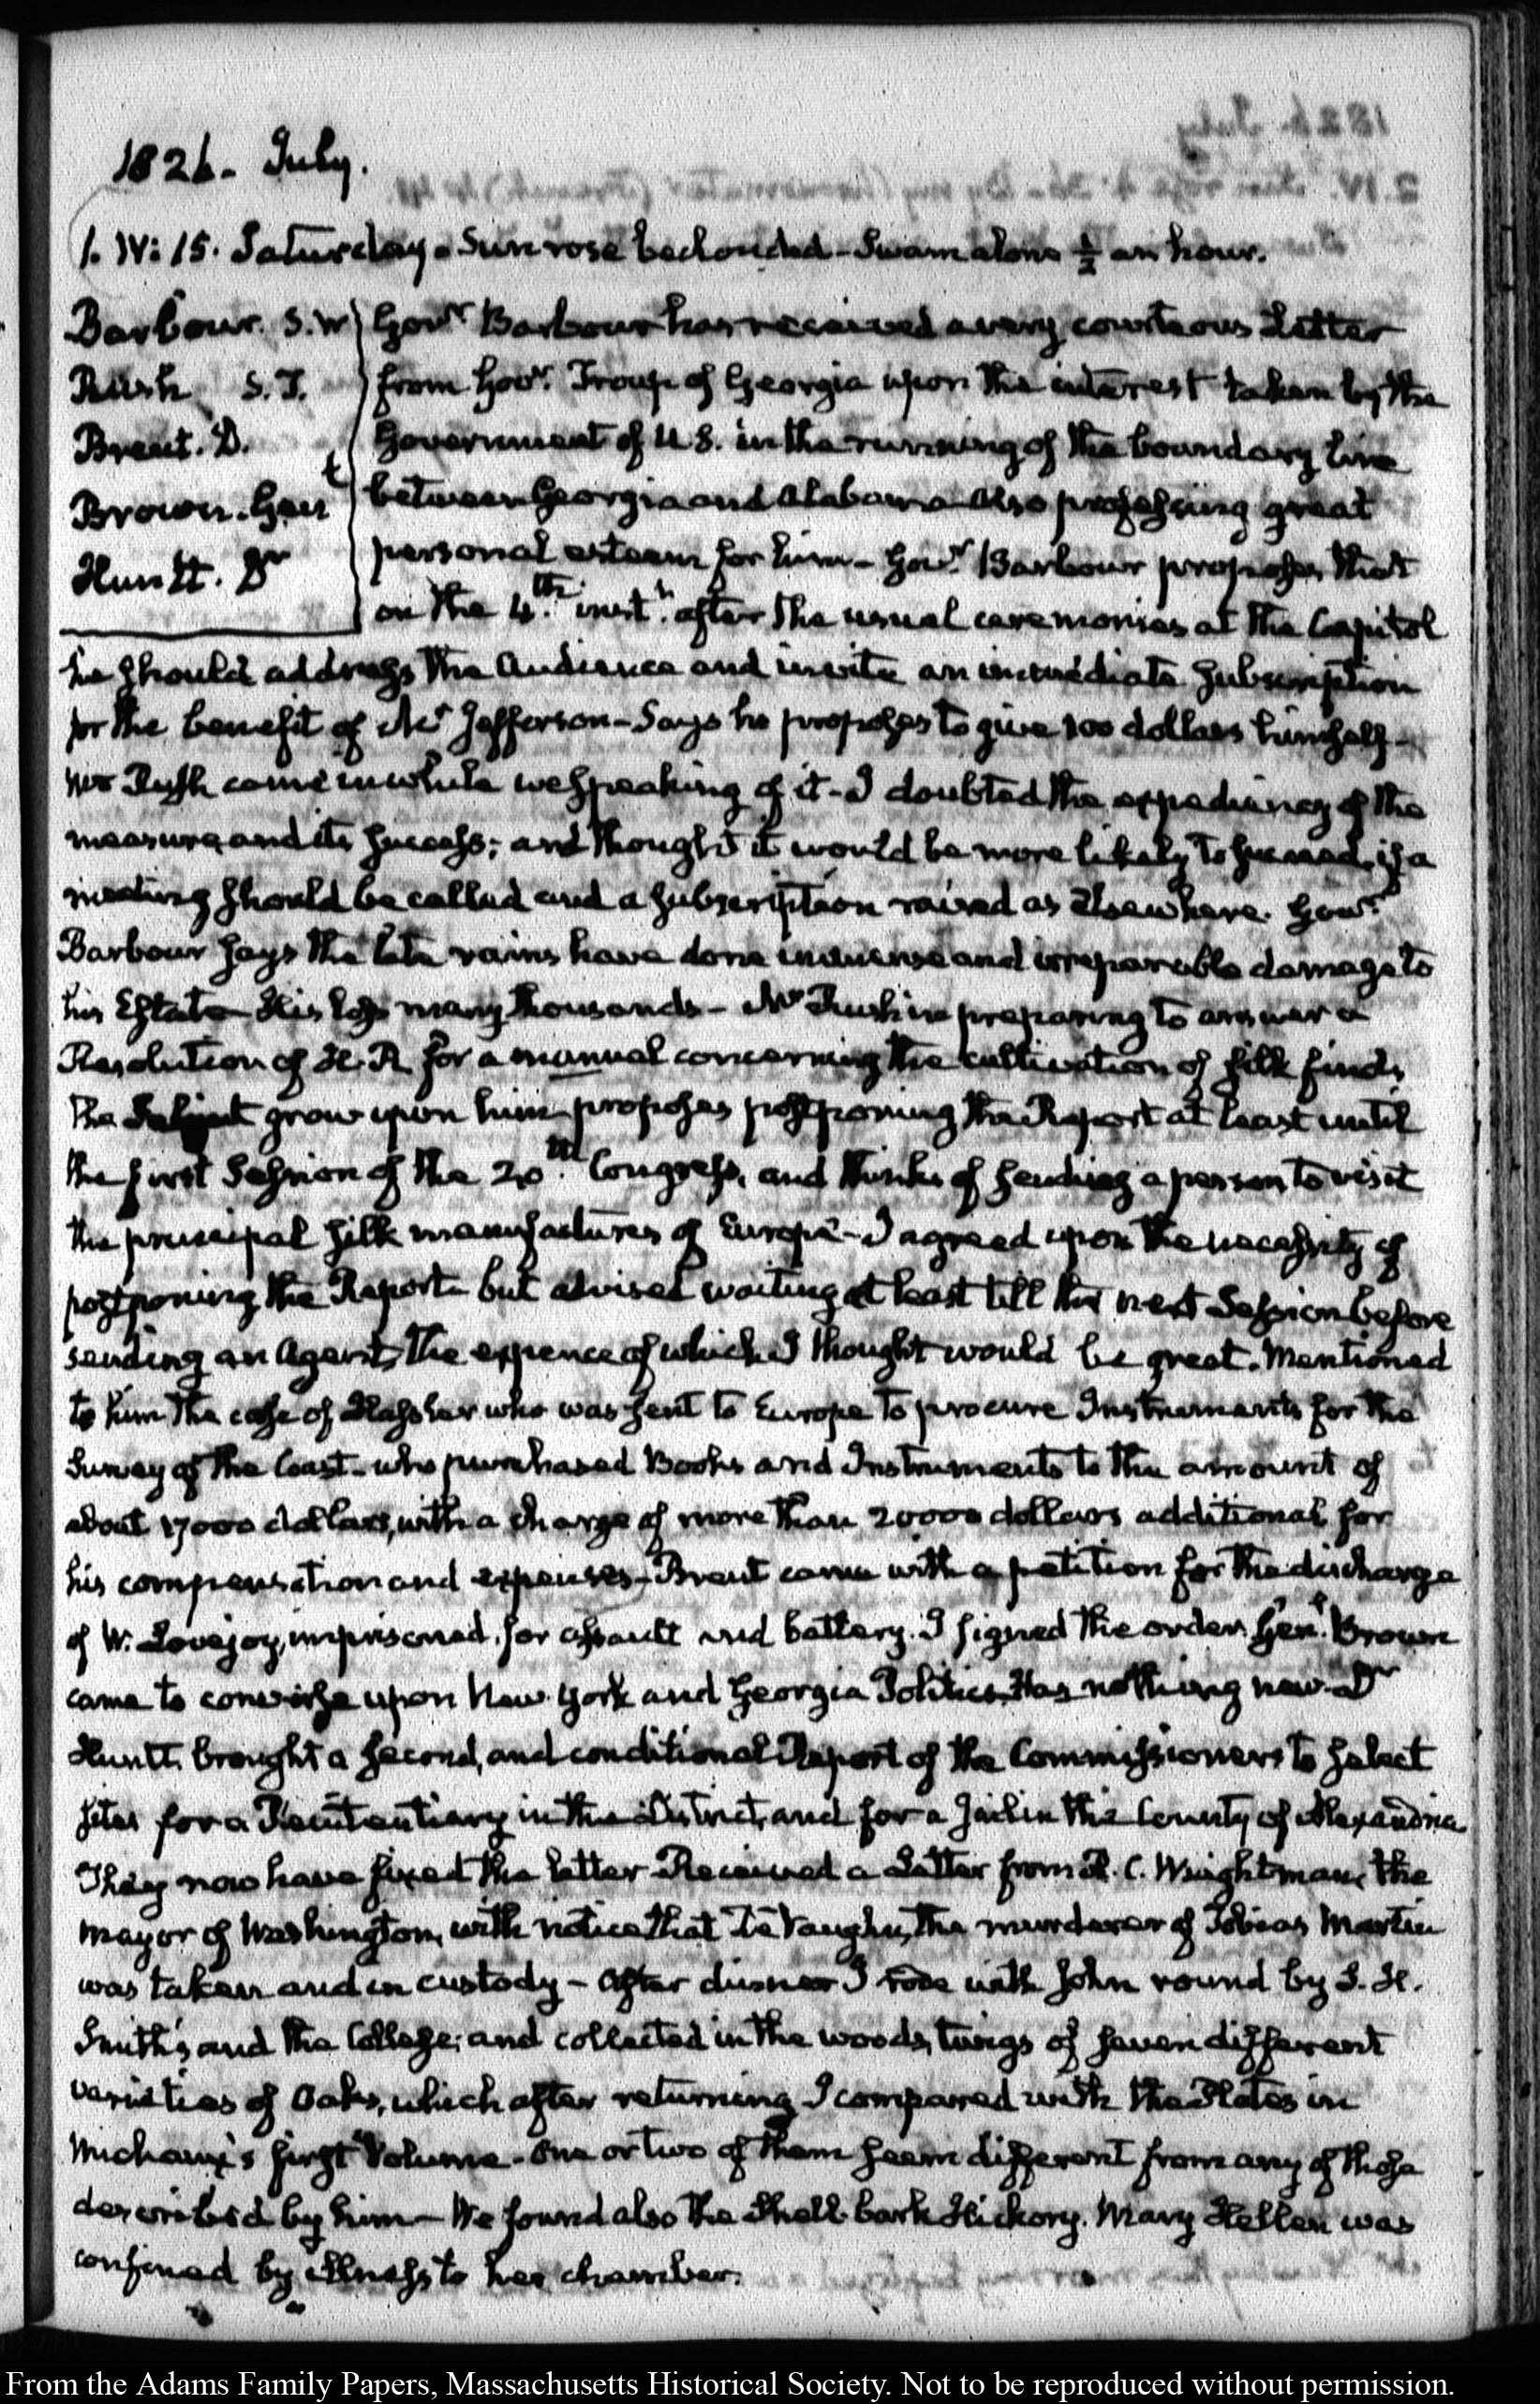 1826. July.
1. IV: 15. Saturday. Sun rose beclouded - Swam alone ½ an hour.
Barbour. S.W
Rush S.T.
Brent. D.
Brown. Genl
Huntt. Dr
Govr Barbour has received a very courteous Letter
from Govr. Troup of Georgia upon the interest taken by the
Government of U.S. in the running of the boundary line
between Georgia and Alabama - Also professing great
personal esteem for him - Govr. Barbour proposes that
on the 4th. instt. after the usual ceremonies at the Capitol
he should address the Audience and invite an immediate subscription
for the benefit of Mr Jefferson - Says he proposes to give 100 dollars himself -
Mr Rush came in while we speaking of it - I doubted the expediency of the
measure, and its success; and thought it would be more likely to succeed, if a
meeting should be called and a subscription raised as elsewhere. Govr.
Barbour says the late rains have done immense and irreparable damage to
his Estate - His loss many thousands - Mr Rush in preparing to answer a
Resolution of H.R for a manual concerning the cultivation of silk finds
the Subject grow upon him - proposes postponing the Report at least until
the first Session of the 20th. Congress, and thinks of sending a person to visit
the principal silk manufactures of Europe - I agreed upon the necessity of
postponing the Report - but advised waiting at least till the next Session before
sending an Agent, the expence of which I thought would be great. Mentioned
to him the case of Hassler who was sent to Europe to procure Instruments for the
Survey of the Coast - who purchased Books and Instruments to the amount of
about 17000 dollars, with a charge of more than 20000 dollars additional for
his compensation and expenses - Brent came with a petition for the discharge
of W. Lovejoy, imprisoned for assault and battery. I signed the order. Genl. Brown
came to converse upon New York and Georgia Politics. Has nothing new - Dr
Huntt brought a second, and conditional Report of the Commissioners to select
sites for a Penitentiary in this District, and for a Jail in the County of Alexandria
They now have fixed the latter - Received a Letter from R. C. Weightman, the
Mayor of Washington, with notice that De Vaughn, the murderer of Tobias Martin
was taken and in custody - After dinner I rode with John round by S. H.
Smith's and the College; and collected in the woods, twigs of seven different
varieties of Oaks, which after returning I compared with the Plates in
Michaux's first Volume - One or two of them seem different from any of those
described by him - We found also the Shell bark Hickory. Mary Hellen was
confined by illness to her chamber.
From the Adams Family Papers, Massachusetts Historical Society. Not to be reproduced without permission.